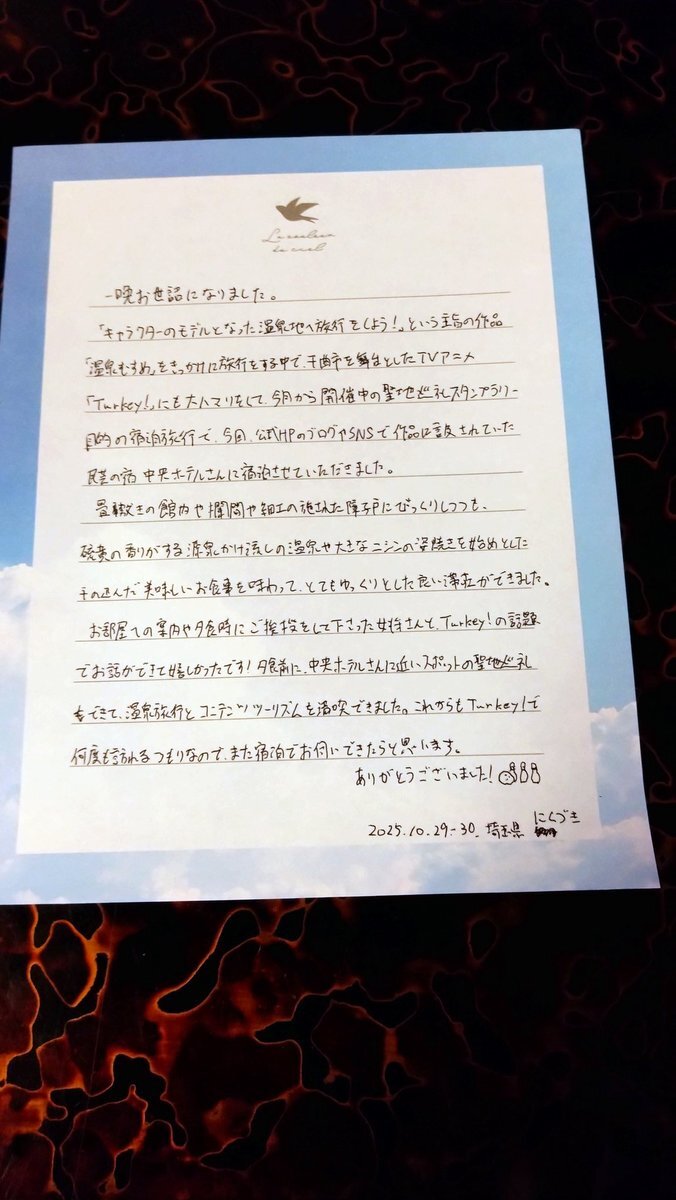 La couleur
du ciel
一晩お世話になりました。
「キャラクターのモデルとなった温泉地へ旅行をしよう!」という主旨の作品
「温泉むすめ」をきっかけに旅行をする中で、千曲市を舞台としたTVアニメ
「Turkey!」にも大ハマりをして、今月から開催中の聖地巡礼スタンプラリー
目的の宿泊旅行で、今回、公式HPのブログやSNSで作品に言及されていた
民芸の宿 中央ホテルさんに宿泊させていただきました。
畳敷きの館内や欄間や細工の施された障子戸にびっくりしつつも、
硫黄の香りがする源泉かけ流しの温泉や大きなニシンの姿焼きを始めとした
手の込んだ美味しいお食事を味わって、とてもゆっくりとした良い滞在ができました。
お部屋への案内や夕食時にご挨拶をして下さった女将さんと、Turkey!の話題
でお話ができて嬉しかったです!夕食前に、中央ホテルさんに近いスポットの聖地巡礼
もできて、温泉旅行とコンテンツツーリズムを満喫できました。これからもTurkey!で
何度も訪れるつもりなので、また宿泊でお伺いできたらと思います。
ありがとうございました!
2025.10.29-30. 埼玉県 にくづき